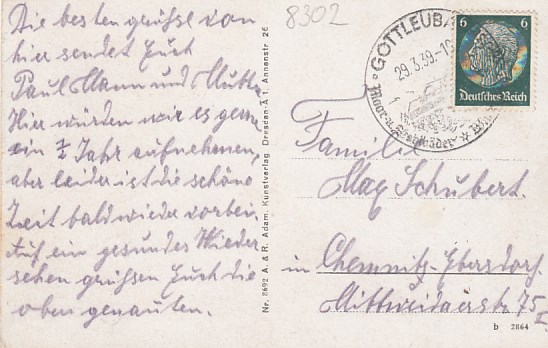 Die besten grüsse von
hier sendet Euch
Paul Mann und Mutti
Hier würden wir es gern
ein ½ Jahr aufnehmen,
aber leider ist die schöne
Zeit bald wieder vorbei.
Auf ein gesundes Wieder
sehen grüssen Euch die
oben genauten.
8302
Nr. 2692 A. & R. Adam, Kunstverlag, Dresden-A 1, Annenstr. 26
GOTTLEUBA
29.3.39.-10
Moor-u.Stahlbäder
6 6
Deutsches Reich
Familie
Max Schubert.
in Chemnitz-Ebersdorf
Mittweidaerstr 75 I
b 2864